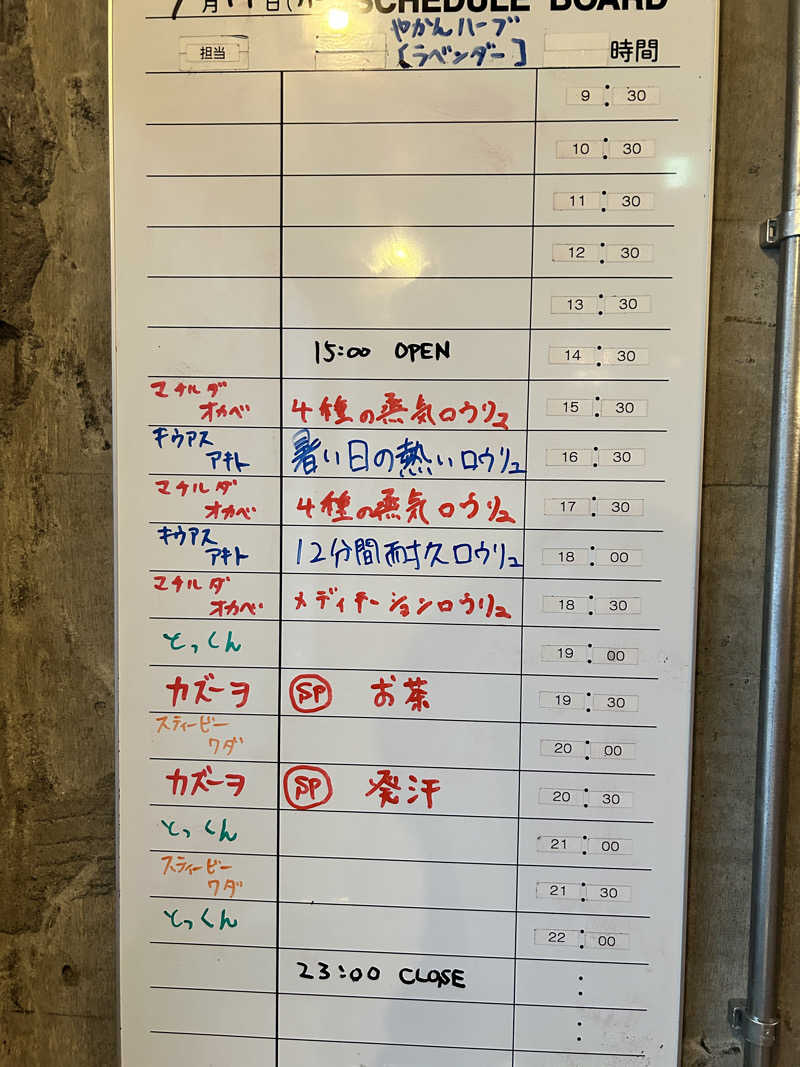 SCHEDULE BOARD
やかんハーブ
担当 [ラベンダー] 時間
9:30
10:30
11:30
12:30
13:30
15:00 OPEN 14:30
マチルダ
オカベ 4種の蒸気ロウリュ 15:30
キウアス
アキト 暑い日の熱いロウリュ 16:30
マチルダ
オカベ 4種の蒸気ロウリュ 17:30
キウアス
アキト 12分間耐久ロウリュ 18:00
マチルダ
オカベ メディテーションロウリュ 18:30
とっくん 19:00
カズーヲ SP お茶 19:30
スティービー
ワダ 20:00
カズーヲ SP 発汗 20:30
とっくん 21:00
スティービー
ワダ 21:30
とっくん 22:00
23:00 CLOSE :
: